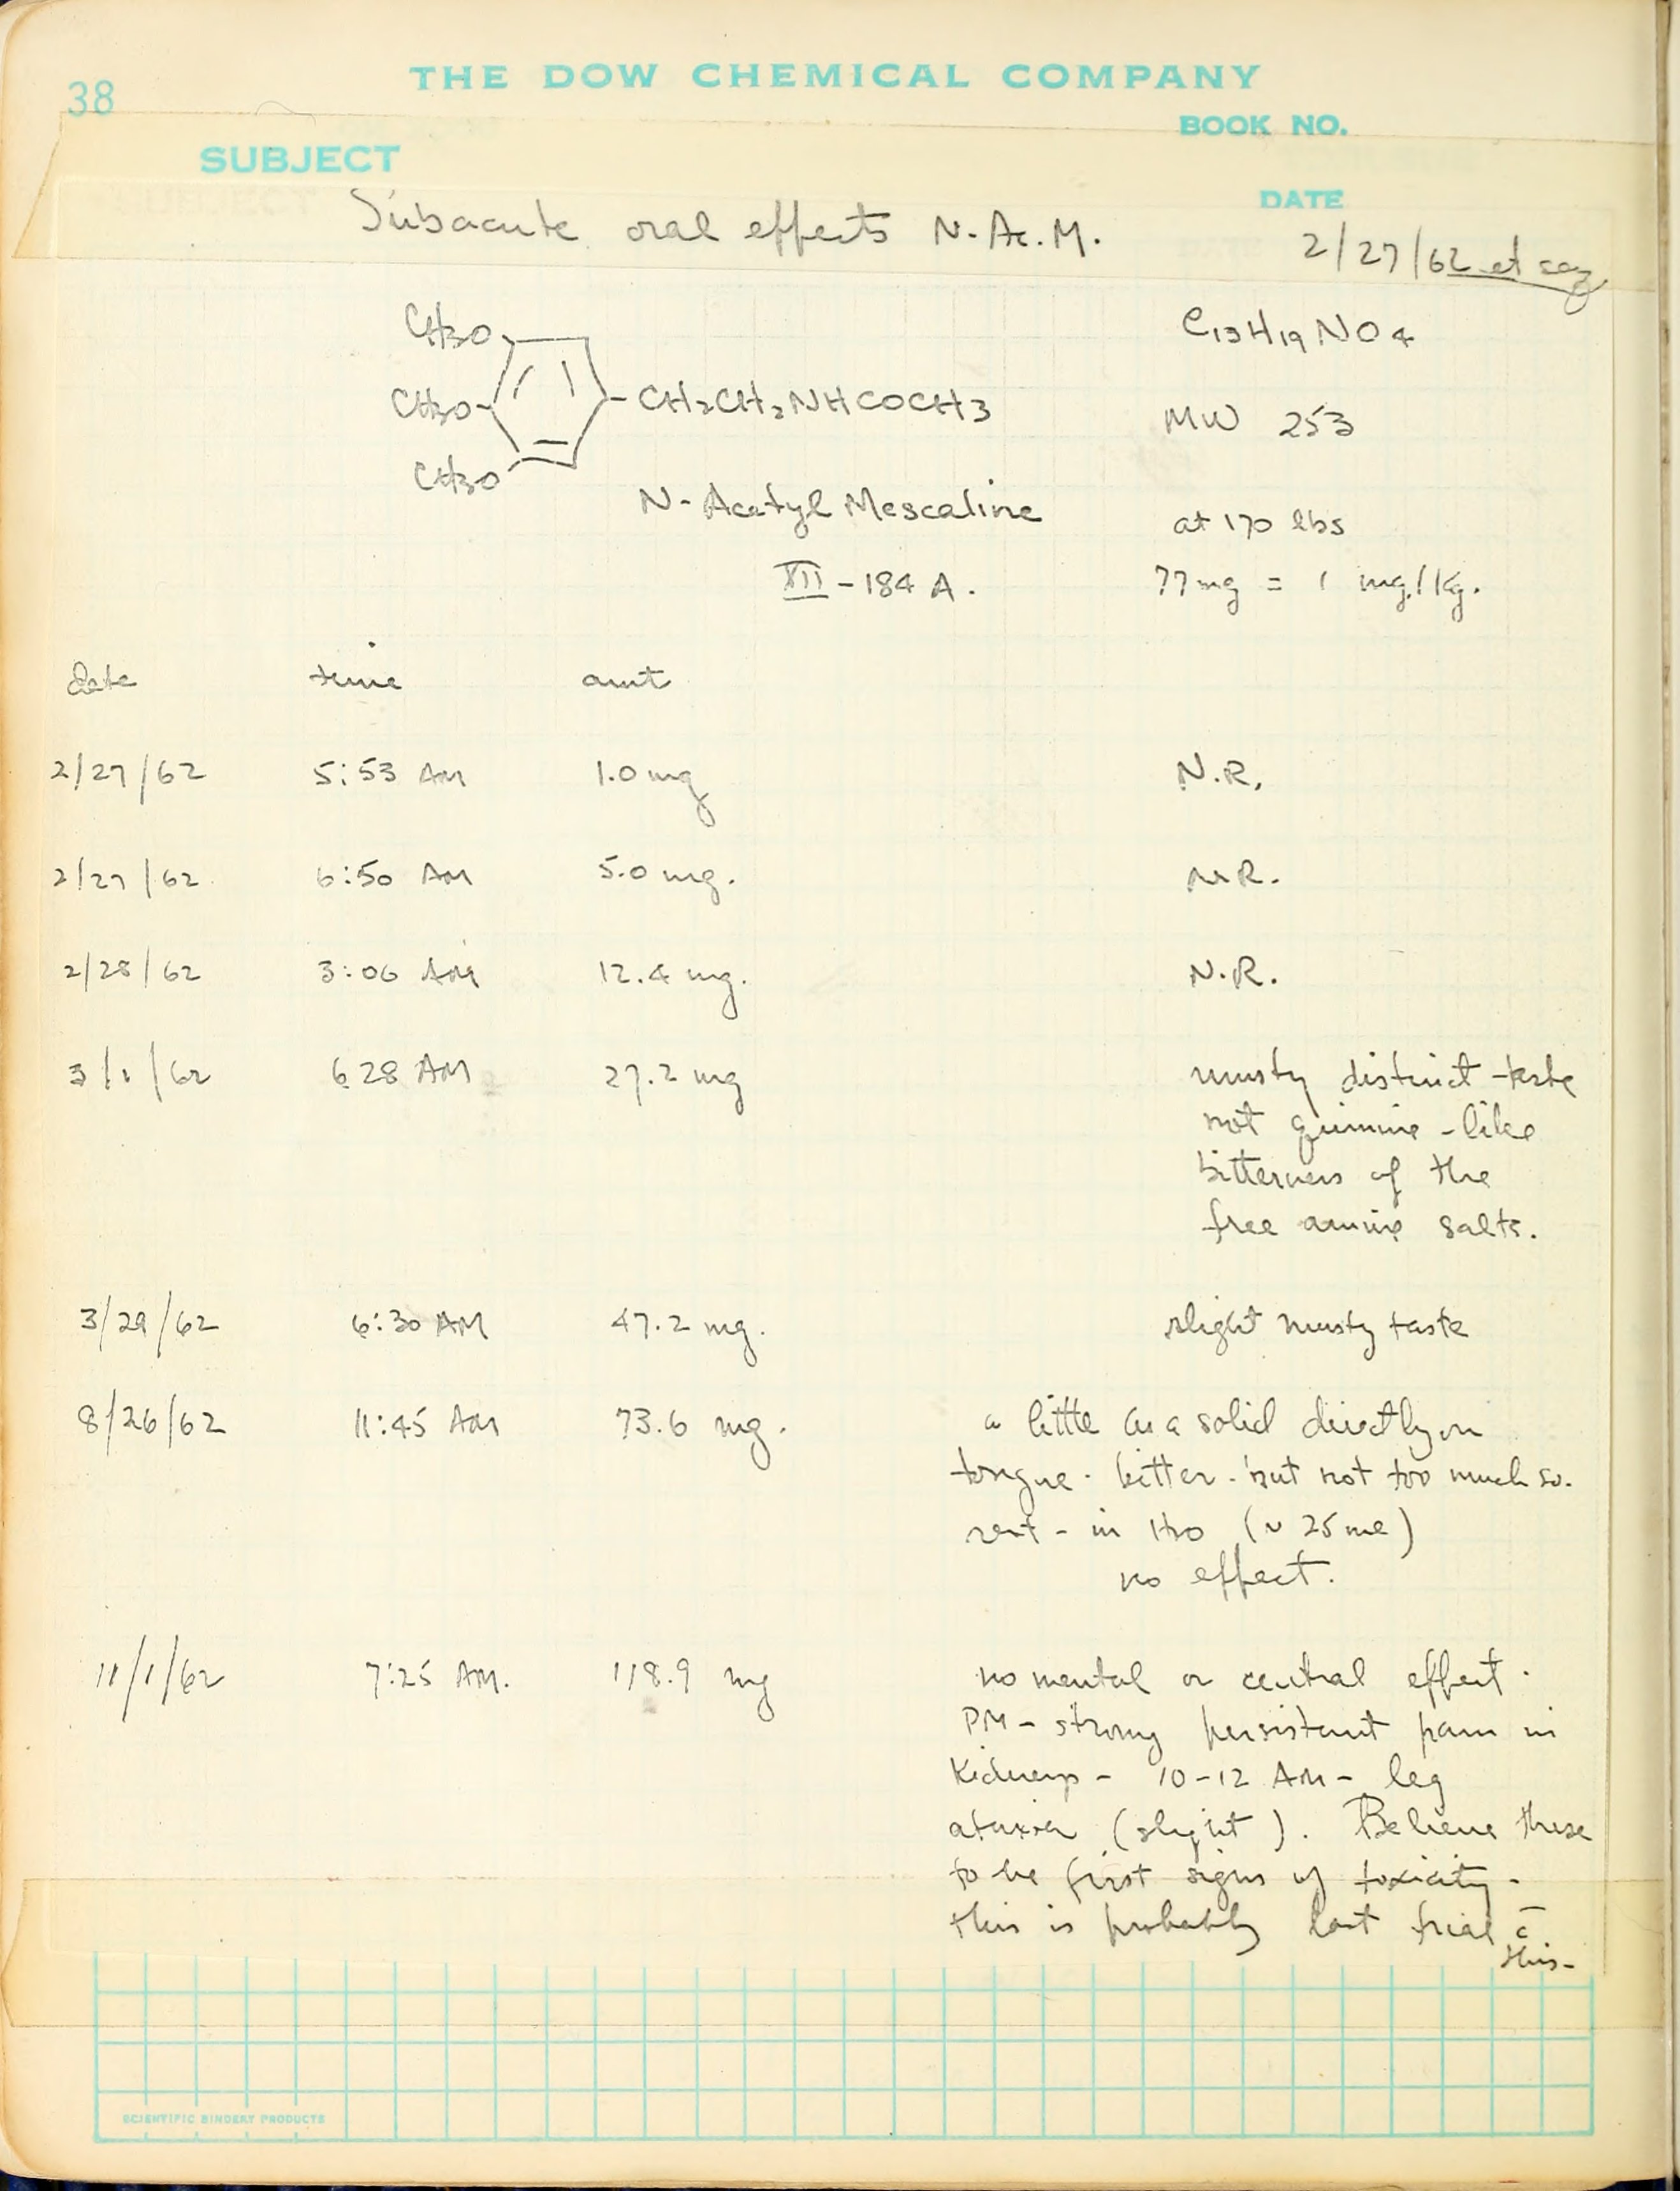 38
THE DOW CHEMICAL COMPANY
BOOK NO.
SUBJECT
DATE
Subacute oral effects N.Ac.M.
2/27/62 et seq
CH3O
C13H19NO4
CH3O- -CH2CH2NHCOCH3
MW 253
CH3O
N-Acetyl Mescaline
at 170 lbs
XII-184 A.
77mg = 1 mg/Kg.
date time amt
2/27/62 5:53 AM 1.0 mg N.R.
2/27/62 6:50 AM 5.0 mg. N.R.
2/28/62 3:06 AM 12.4 mg. N.R.
3/1/62 628 AM 27.2 mg musty distinct taste
not quinine-like
bitterness of the
free amine salts.
3/29/62 6:30 AM 47.2 mg. slight musty taste
8/26/62 11:45 AM 73.6 mg. a little as a solid directly on
tongue. bitter. but not too much so.
rest - in H2O (~ 25 ml)
no effect.
11/1/62 7:25 AM. 118.9 mg no mental or central effect.
PM - strong persistent pain in
Kidneys - 10-12 AM - leg
ataxia (slight). Believe these
to be first signs of toxicity -
this is probably last trial c̄
this-
SCIENTIFIC BINDERY PRODUCTS